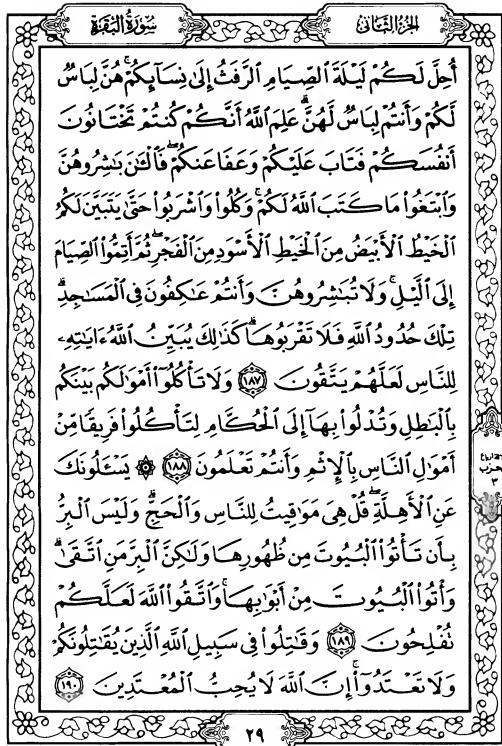 الجزء الثاني
سورة البقرة
أُحِلَّ لَكُمْ لَيْلَةَ ٱلصِّيَامِ ٱلرَّفَثُ إِلَىٰ نِسَآئِكُمْ ۚ هُنَّ لِبَاسٌ
لَّكُمْ وَأَنتُمْ لِبَاسٌ لَّهُنَّ ۗ عَلِمَ ٱللَّهُ أَنَّكُمْ كُنتُمْ تَخْتَانُونَ
أَنفُسَكُمْ فَتَابَ عَلَيْكُمْ وَعَفَا عَنكُمْ ۖ فَٱلْـَٰٔنَ بَـٰشِرُوهُنَّ
وَٱبْتَغُوا۟ مَا كَتَبَ ٱللَّهُ لَكُمْ ۚ وَكُلُوا۟ وَٱشْرَبُوا۟ حَتَّىٰ يَتَبَيَّنَ لَكُمُ
ٱلْخَيْطُ ٱلْأَبْيَضُ مِنَ ٱلْخَيْطِ ٱلْأَسْوَدِ مِنَ ٱلْفَجْرِ ۖ ثُمَّ أَتِمُّوا۟ ٱلصِّيَامَ
إِلَى ٱلَّيْلِ ۚ وَلَا تُبَـٰشِرُوهُنَّ وَأَنتُمْ عَـٰكِفُونَ فِى ٱلْمَسَـٰجِدِ ۗ
تِلْكَ حُدُودُ ٱللَّهِ فَلَا تَقْرَبُوهَا ۗ كَذَٰلِكَ يُبَيِّنُ ٱللَّهُ ءَايَـٰتِهِۦ
لِلنَّاسِ لَعَلَّهُمْ يَتَّقُونَ ١٨٧ وَلَا تَأْكُلُوٓا۟ أَمْوَٰلَكُم بَيْنَكُم
بِٱلْبَـٰطِلِ وَتُدْلُوا۟ بِهَآ إِلَى ٱلْحُكَّامِ لِتَأْكُلُوا۟ فَرِيقًا مِّنْ
أَمْوَٰلِ ٱلنَّاسِ بِٱلْإِثْمِ وَأَنتُمْ تَعْلَمُونَ ١٨٨ ۞ يَسْـَٔلُونَكَ
عَنِ ٱلْأَهِلَّةِ ۖ قُلْ هِىَ مَوَٰقِيتُ لِلنَّاسِ وَٱلْحَجِّ ۗ وَلَيْسَ ٱلْبِرُّ
بِأَن تَأْتُوا۟ ٱلْبُيُوتَ مِن ظُهُورِهَا وَلَـٰكِنَّ ٱلْبِرَّ مَنِ ٱتَّقَىٰ ۗ
وَأْتُوا۟ ٱلْبُيُوتَ مِنْ أَبْوَٰبِهَا ۚ وَٱتَّقُوا۟ ٱللَّهَ لَعَلَّكُمْ
تُفْلِحُونَ ١٨٩ وَقَـٰتِلُوا۟ فِى سَبِيلِ ٱللَّهِ ٱلَّذِينَ يُقَـٰتِلُونَكُمْ
وَلَا تَعْتَدُوٓا۟ ۚ إِنَّ ٱللَّهَ لَا يُحِبُّ ٱلْمُعْتَدِينَ ١٩٠
حزب
٣
٢٩